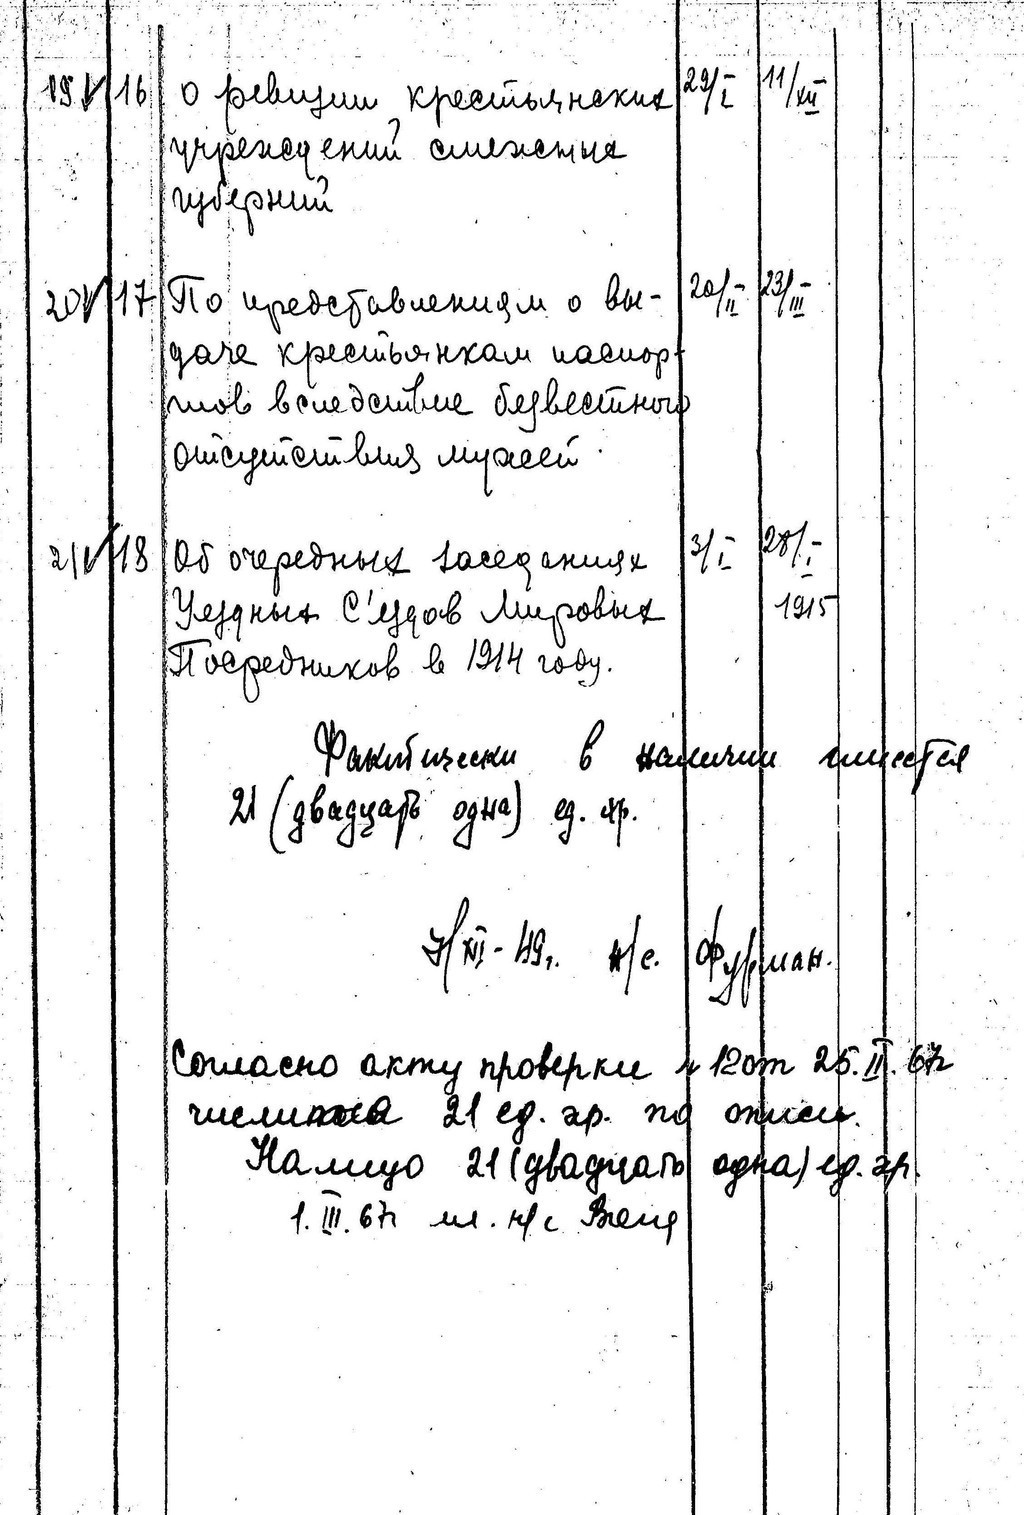 19 16 О ревизии крестьянских 29/I 11/XII
учреждений смежных
губерний
20 17 По представлениям о вы- 20/II 23/III
даче крестьянкам паспор-
тов вследствие безвестного
отсутствия мужей
21 18 Об очередных заседаниях 3/I 28/I
Уездных С'ездов Мировых 1915
Посредников в 1914 году.
Фактически в наличии имеется
21 (двадцать одна) ед. хр.
/XII-49г. н/с. Фурман.
Согласно акту проверки № 12 от 25.II.67г
21 ед. хр. по описи.
Налицо 21 (двадцать одна) ед. хр.
1.III.67г мл. н/с